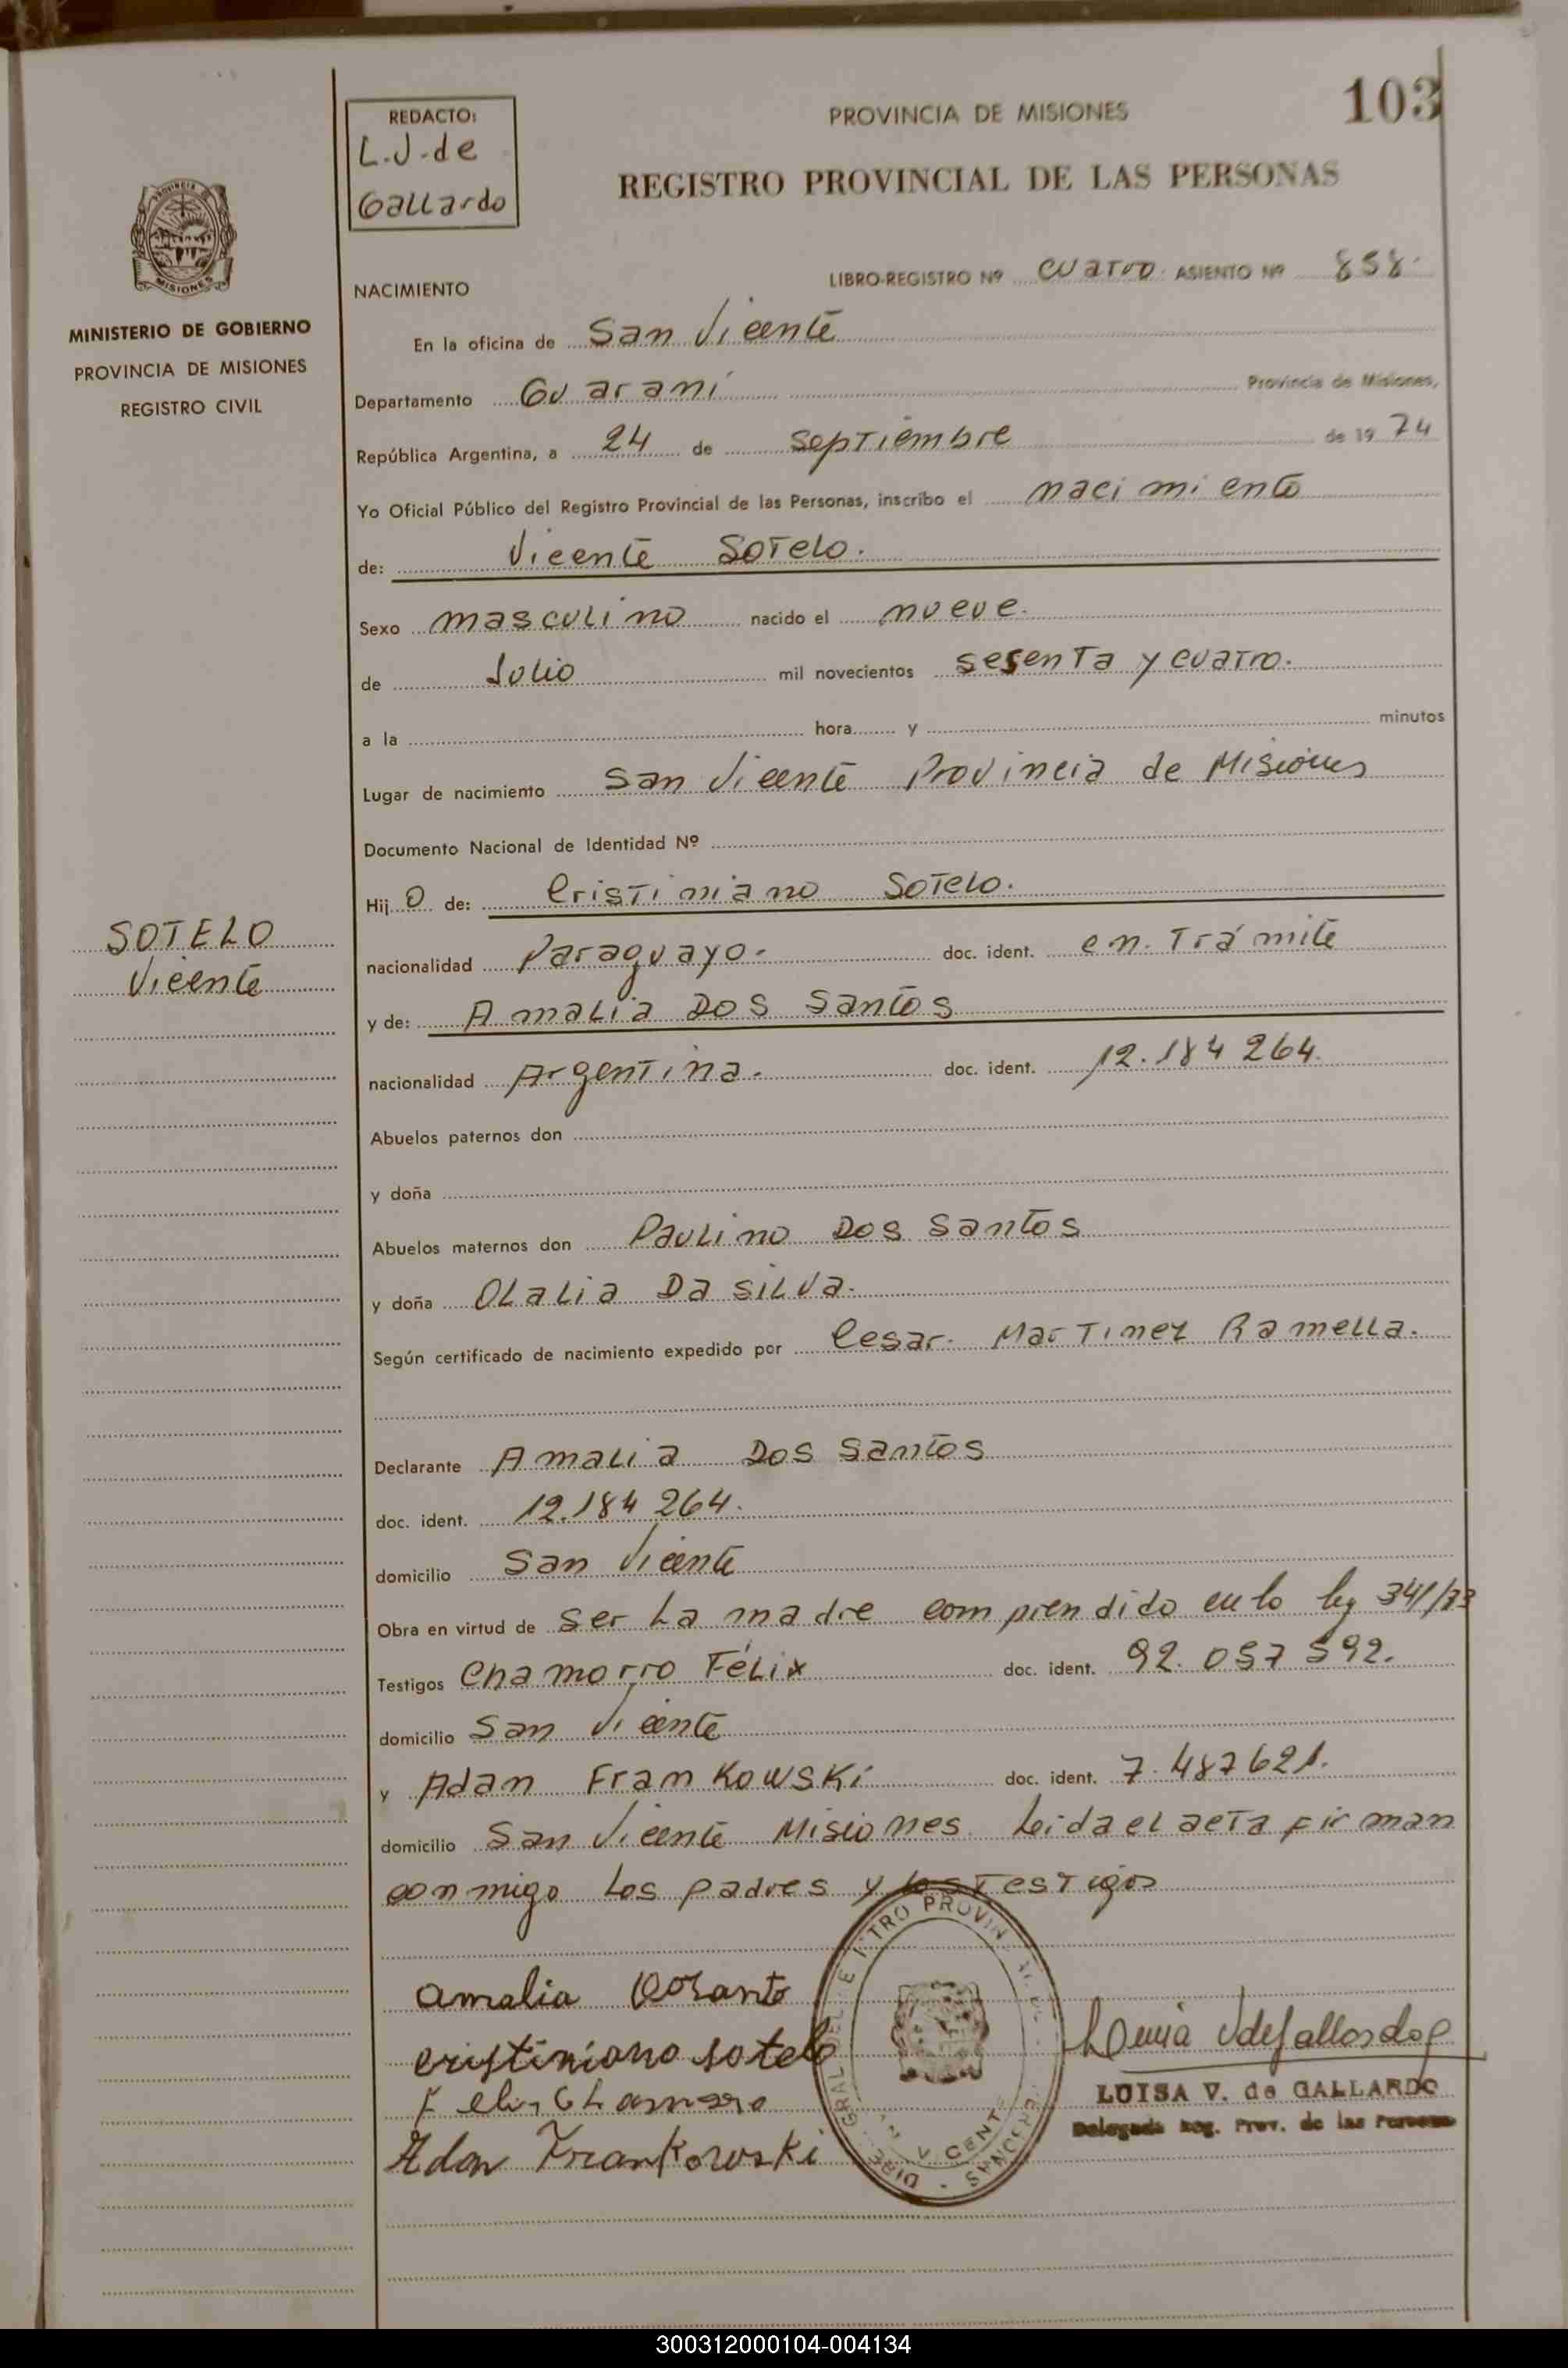 103
REDACTO:
L.J. de
Gallardo
PROVINCIA DE MISIONES
REGISTRO PROVINCIAL DE LAS PERSONAS
PROVINCIA DE
MISIONES
MINISTERIO DE GOBIERNO
PROVINCIA DE MISIONES
REGISTRO CIVIL
NACIMIENTO
LIBRO-REGISTRO Nº cuarto. ASIENTO Nº 858.
En la oficina de San Vicente
Departamento Guaraní Provincia de Misiones,
República Argentina, a 24 de septiembre de 1974
Yo Oficial Público del Registro Provincial de las Personas, inscribo el nacimiento
de: Vicente Sotelo.
Sexo masculino nacido el nueve.
de Julio mil novecientos sesenta y cuatro.
a la hora y minutos
Lugar de nacimiento San Vicente Provincia de Misiones
Documento Nacional de Identidad Nº
Hij o de: Cristiniano Sotelo.
SOTELO
Vicente
nacionalidad Paraguayo. doc. ident. en Trámite
y de: Amalia Dos Santos
nacionalidad Argentina. doc. ident. 12.184 264.
Abuelos paternos don
y doña
Abuelos maternos don Paulino Dos Santos
y doña Olalia Da Silva.
Según certificado de nacimiento expedido por Cesar. Martinez Ramella.
Declarante Amalia Dos Santos
doc. ident. 12.184 264.
domicilio San Vicente
Obra en virtud de ser La madre comprendido en lo ley 341/73
Testigos Chamorro Félix doc. ident. 92.057 592.
domicilio San Vicente
y Adan Frankowski doc. ident. 7.487621.
domicilio San Vicente Misiones. Leida el acta firman
conmigo Los padres y los Testigos
amalia
cristiniano sotelo
Adan Frankowski
LUISA V. de GALLARDO
Delegada Reg. Prov. de las Personas
300312000104-004134